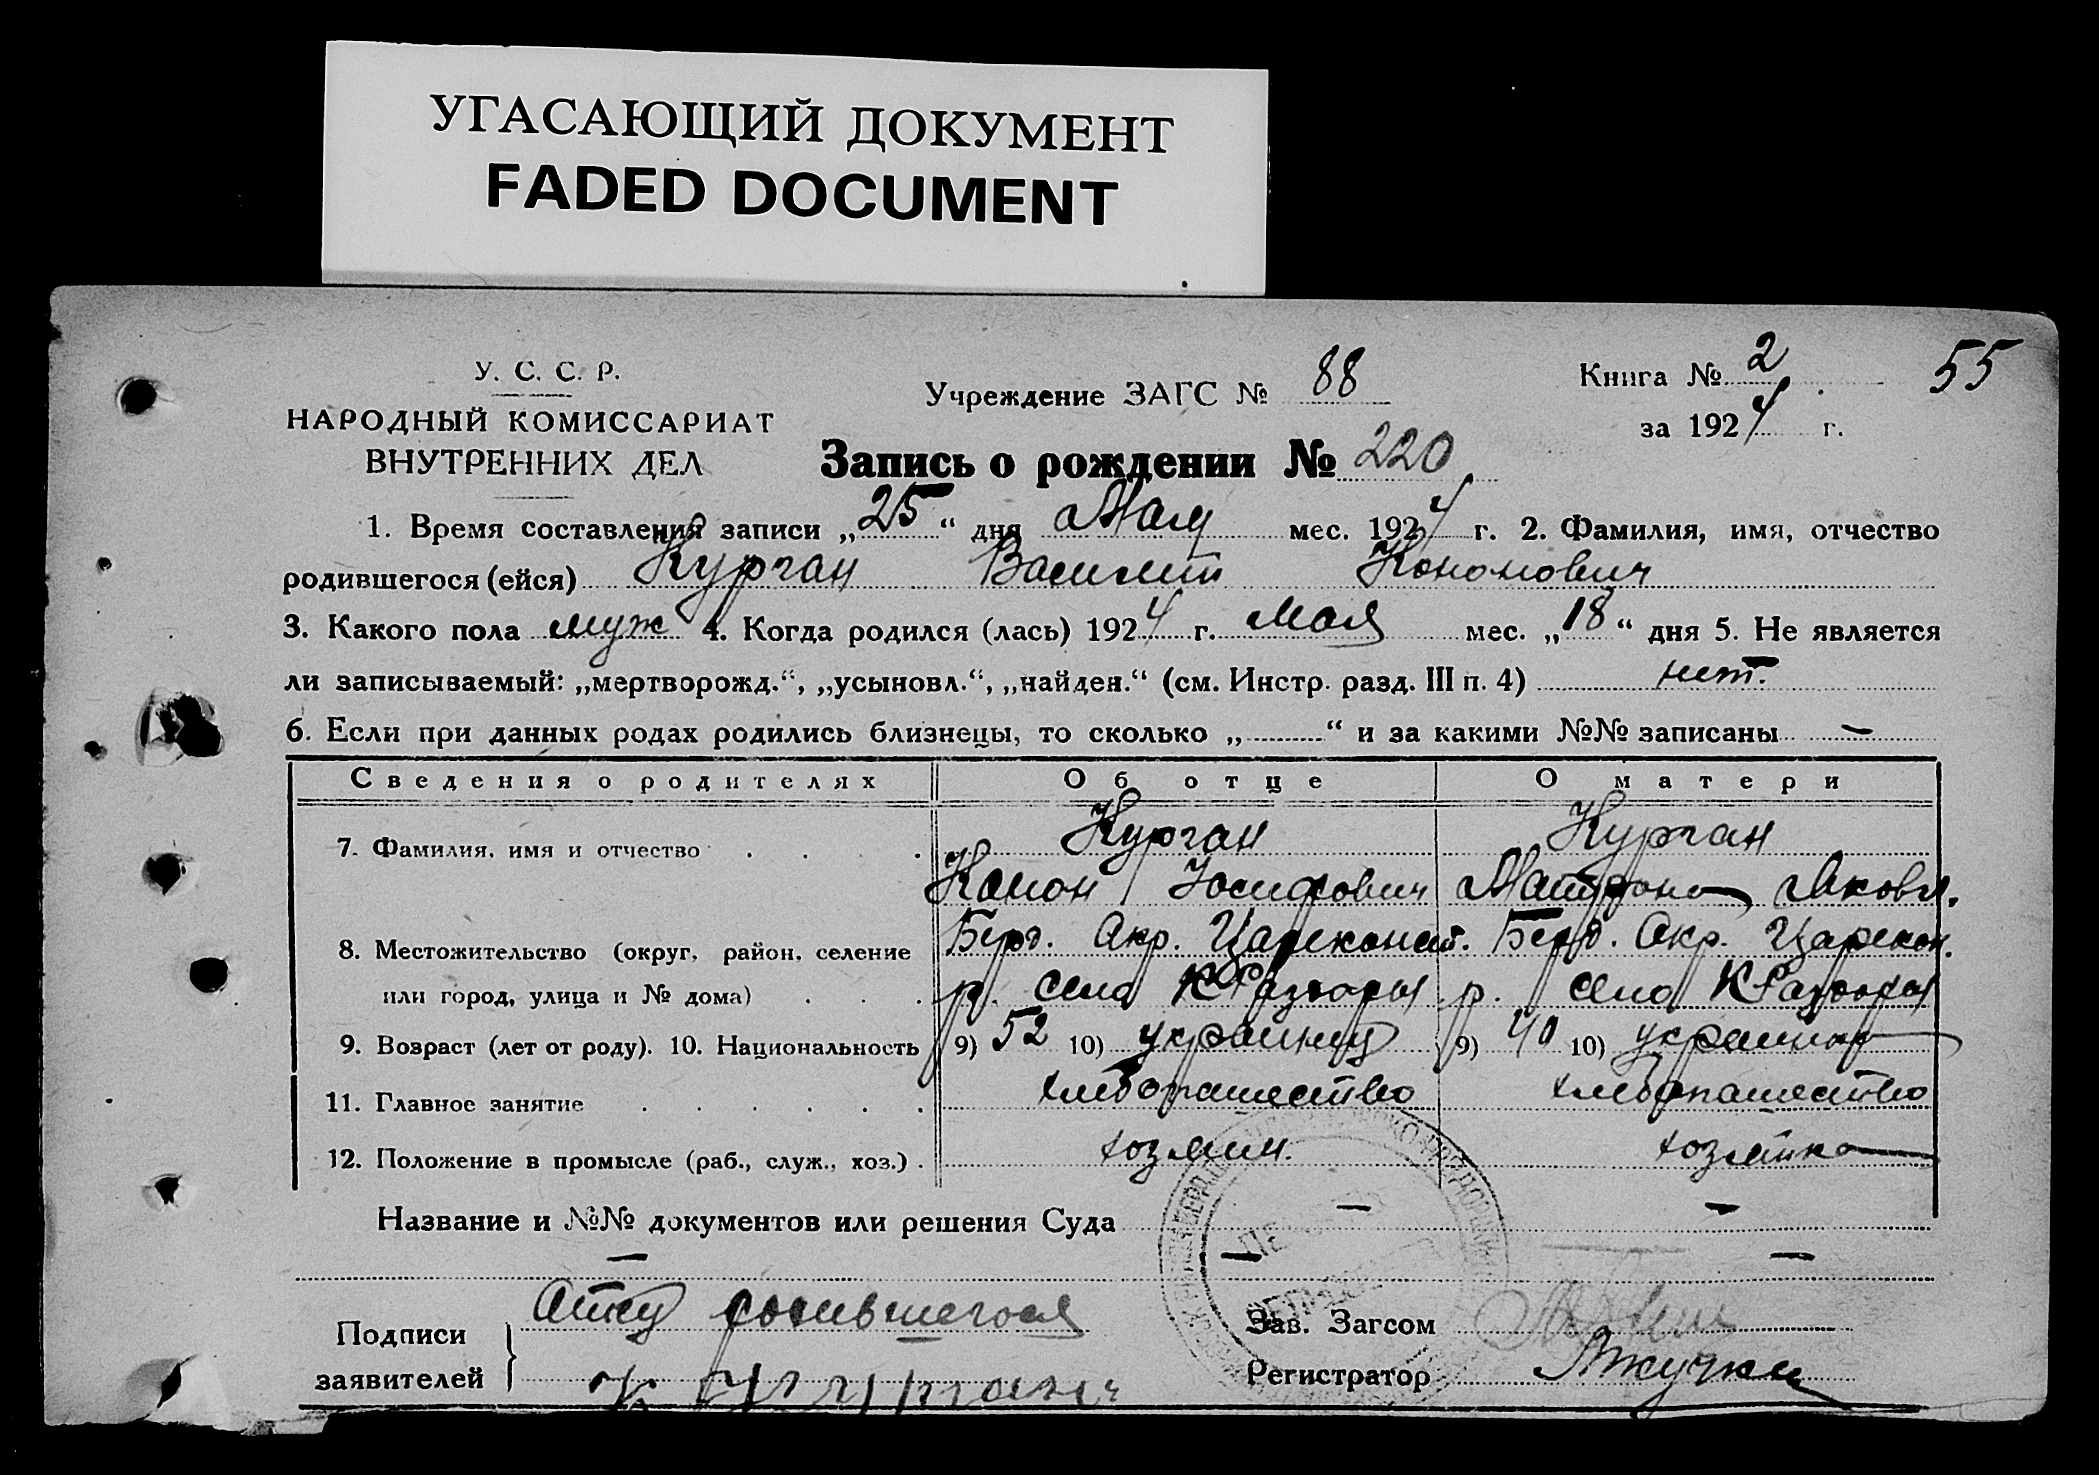 УГАСАЮЩИЙ ДОКУМЕНТ
FADED DOCUMENT
У. С. С. Р.
НАРОДНЫЙ КОМИССАРИАТ
ВНУТРЕННИХ ДЕЛ
Учреждение ЗАГС № 88
Книга № 2
55
за 1924 г.
Запись о рождении № 220
1. Время составления записи „25“ дня Мая мес. 1924 г. 2. Фамилия, имя, отчество
родившегося (ейся) Курган Василий Кононович
3. Какого пола муж 4. Когда родился (лась) 1924 г. мая мес. „18“ дня 5. Не является
ли записываемый: „мертворожд.“, „усыновл.“, „найден.“ (см. Инстр. разд. III п. 4) нет.
6. Если при данных родах родились близнецы, то сколько „ “ и за какими №№ записаны —
Сведения о родителях Об отце О матери
7. Фамилия, имя и отчество Курган Курган
Конон Иосифович Матрона Яковл.
8. Местожительство (округ, район, селение Берд. Окр. Цареконст. Берд. Окр. Царекон.
или город, улица и № дома) р. село К Разоры р. село К Разоры
9. Возраст (лет от роду). 10. Национальность 9) 52 10) украинец 9) 40 10) украинка
11. Главное занятие хлебопашество хлебопашество
12. Положение в промысле (раб., служ., хоз.) хозяин. хозяйка
Название и №№ документов или решения Суда — —
— — —
Подписи заявителей
Отец родившегося
Зав. Загсом
Регистратор